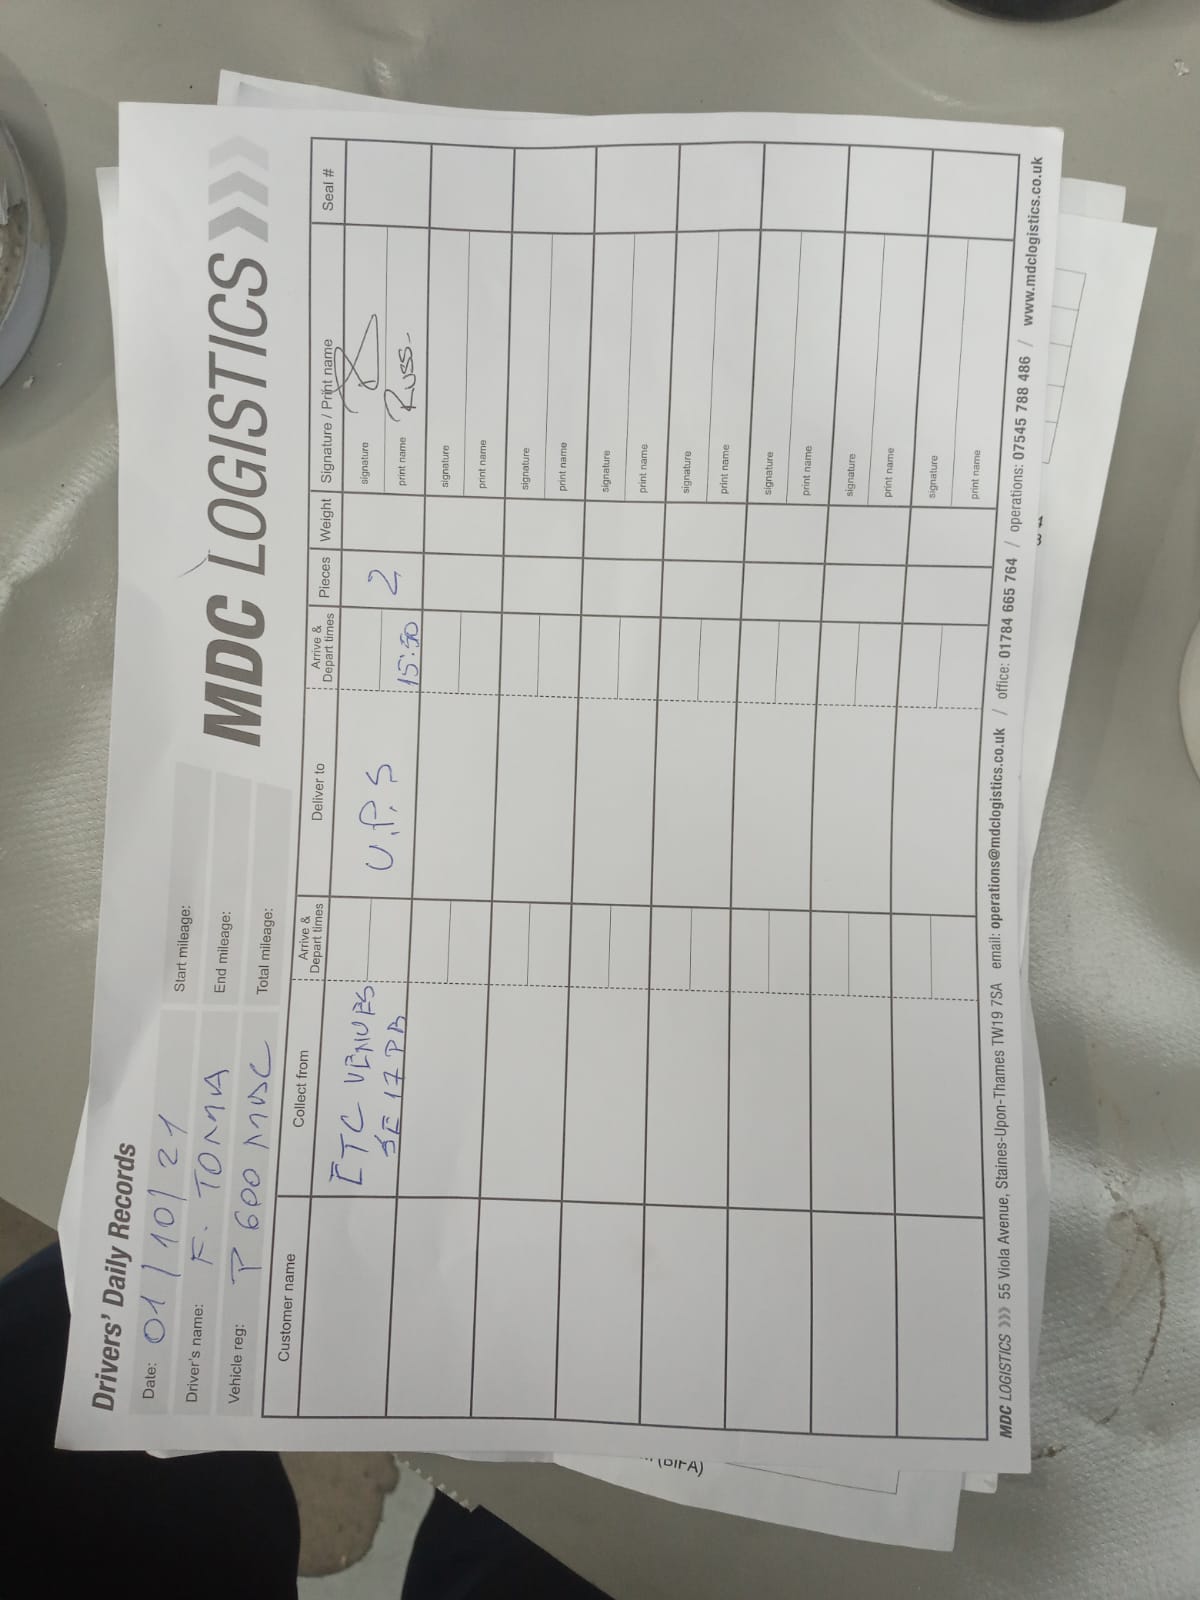 Drivers' Daily Records
MDC LOGISTICS
Date: 01/10/21
Start mileage:
Driver's name: F. TOMA
End mileage:
Vehicle reg: P 600 MDC
Total mileage:
Customer name Collect from Arrive & Depart times Deliver to Arrive & Depart times Pieces Weight Signature / Print name Seal #
ETC VENUES
SE 17PB
U.P.S
15:50
2
signature
print name Russ-
signature
print name
signature
print name
signature
print name
signature
print name
signature
print name
signature
print name
signature
print name
MDC LOGISTICS >>> 55 Viola Avenue, Staines-Upon-Thames TW19 7SA email: operations@mdclogistics.co.uk / office: 01784 665 764 / operations: 07545 788 486 / www.mdclogistics.co.uk
(BIFA)